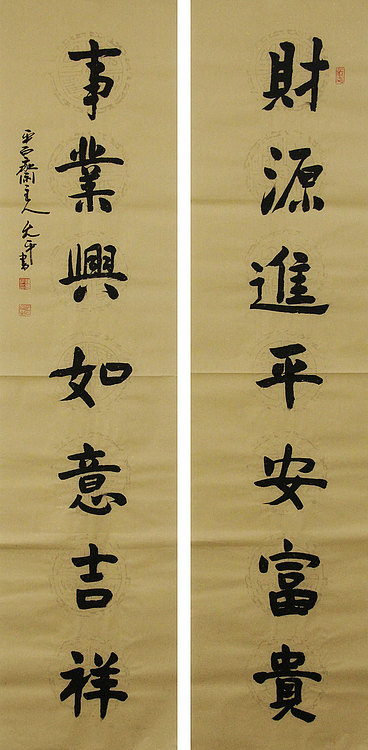 財源進平安富貴
事業興如意吉祥
主人
書